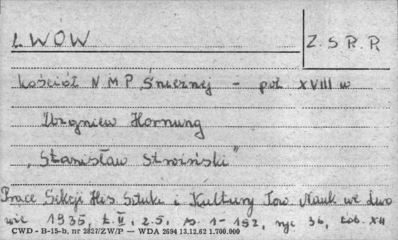 LWOW
Z.S.R.R
Kościół N M P Śnieżnej – poł XVIII w
Zbigniew Hornung
"Stanisław Stroiński"
Prace Sekcji His Sztuki i Kultury Tow Nauk we Lwo
wie 1935, t. II, z.5. s. 1-152, ryc 36, tab. XII
CWD - B-15-b, nr 2827/ZW/P — WDA 2694 13.12.62 1.700.000